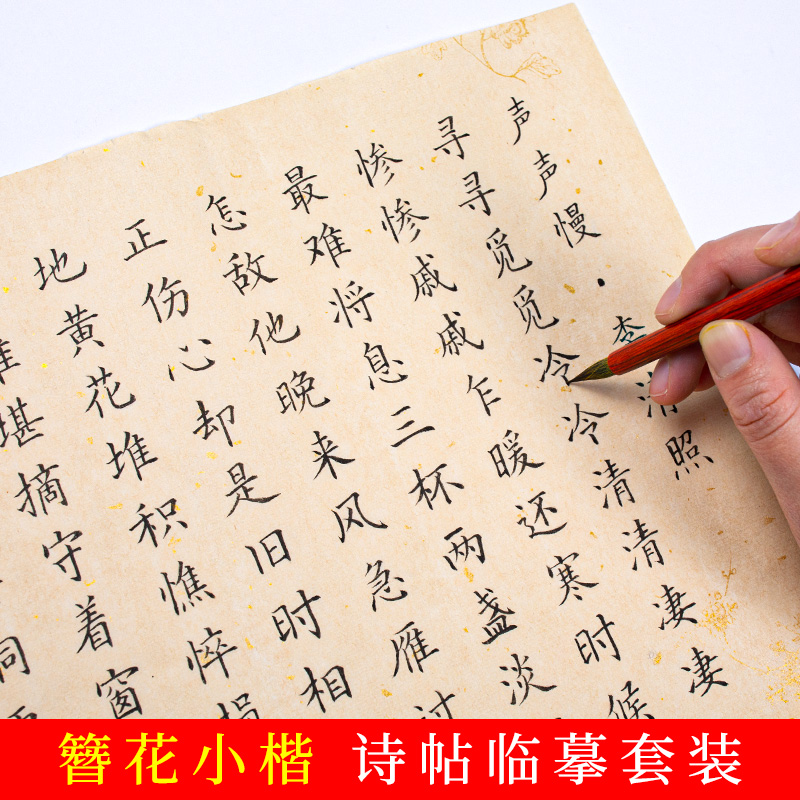 声声慢·李清照
寻寻觅觅冷冷清清凄凄
惨惨戚戚乍暖还寒时候
最难将息三杯两盏淡
怎敌他晚来风急雁过
正伤心却是旧时相
地黄花堆积憔悴损
堪摘守着窗
簪花小楷 诗帖临摹套装